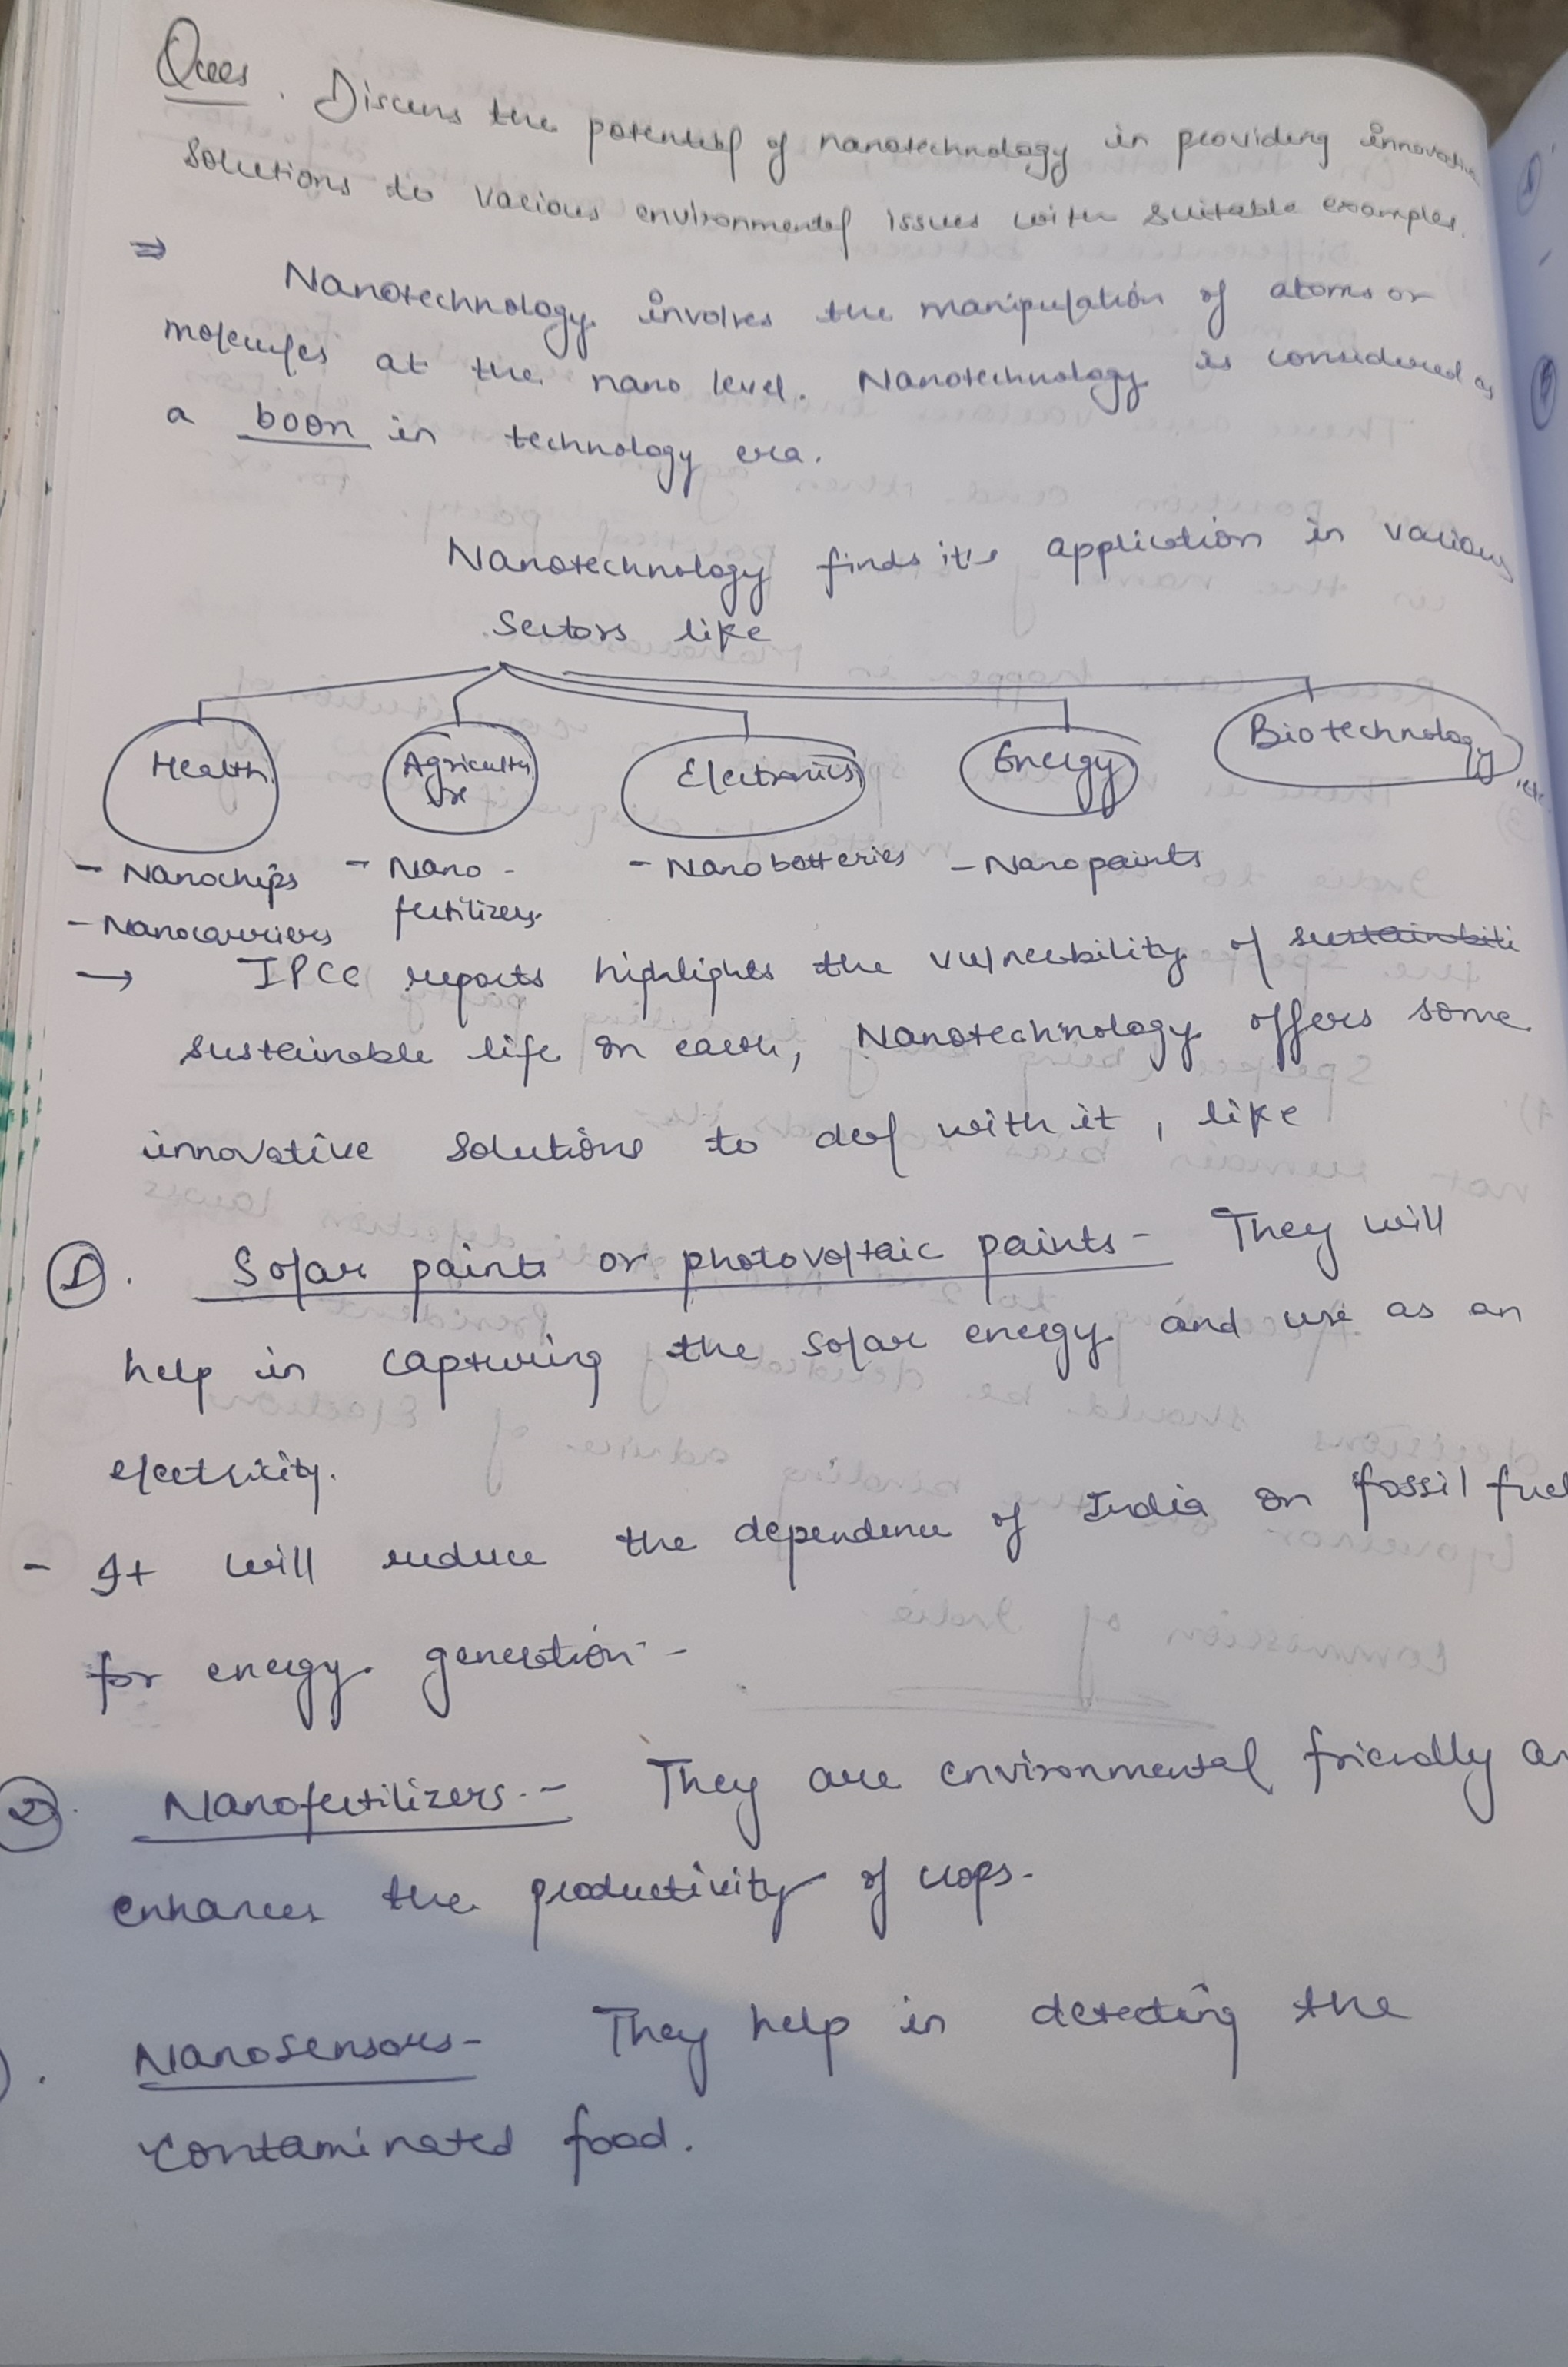 Ques. Discuss the potential of nanotechnology in providing innovative
solutions to various environmental issues with suitable examples.
⇒ Nanotechnology involves the manipulation of atoms or
molecules at the nano level. Nanotechnology is considered as
a boon in technology era.
Nanotechnology finds it's application in various
sectors like
Health Agriculture Electronics Energy Biotechnology, etc
- Nanochips - Nano- - Nanobatteries - Nanopaints
fertilizers.
- Nanocarriers
→ IPCC reports highlights the vulnerability of sustainabili
sustainable life on earth, Nanotechnology offers some
innovative solutions to deal with it, like
1. Solar paints or photovoltaic paints - They will
help in capturing the solar energy and use as an
electricity.
- It will reduce the dependence of India on fossil fuel
for energy generation -
2. Nanofertilizers. - They are environmental friendly an
enhances the productivity of crops.
. Nanosensors - They help in detecting the
contaminated food.